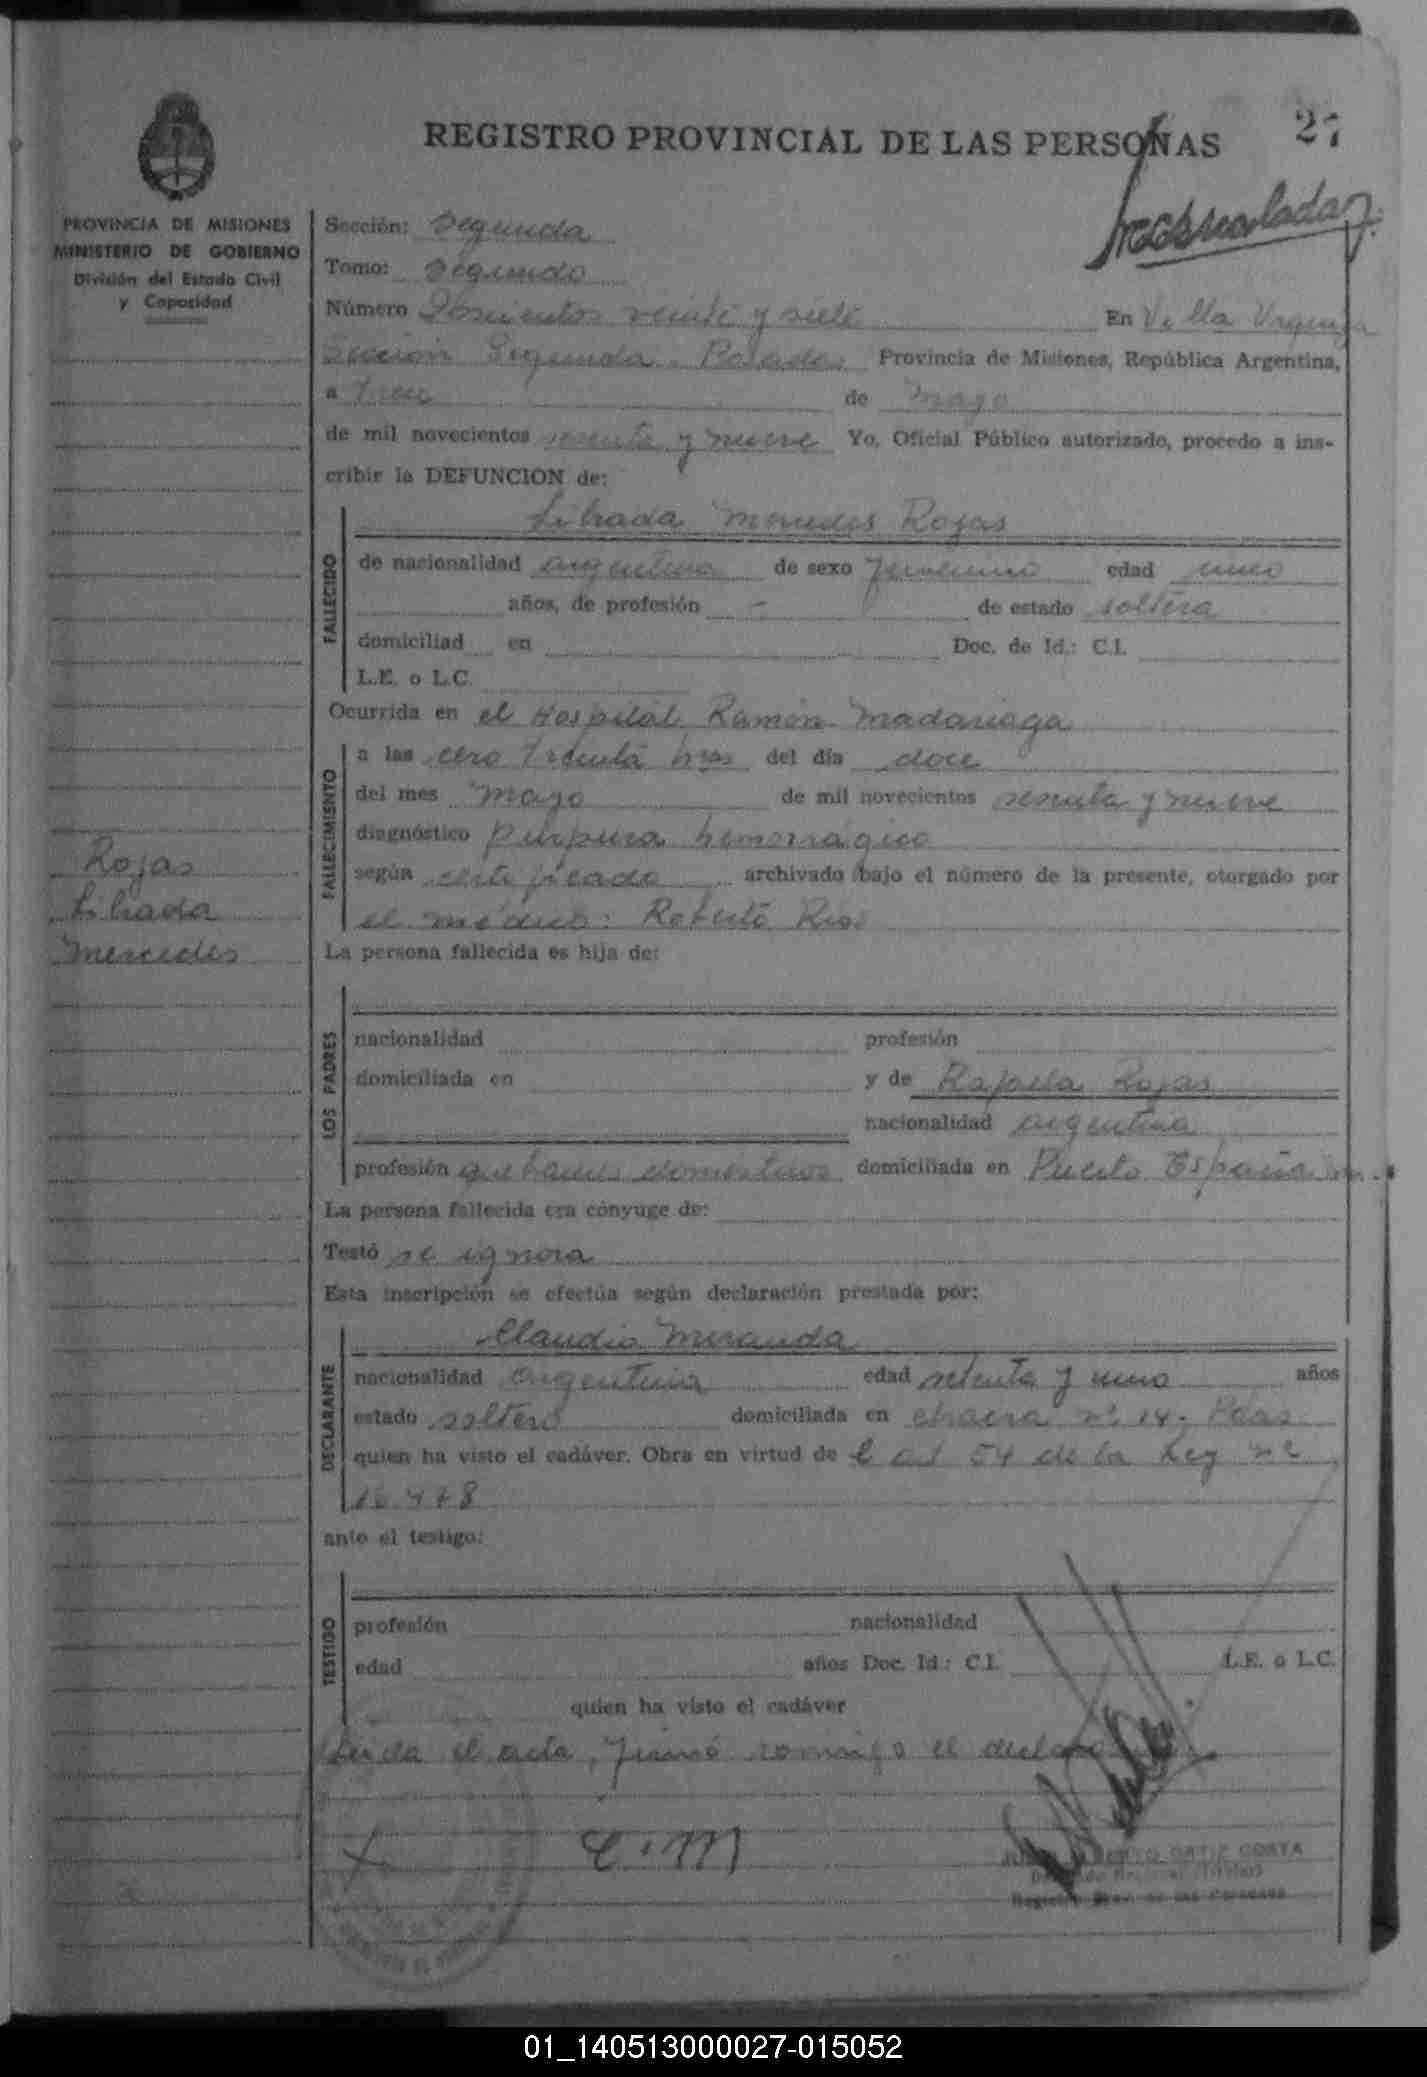 REGISTRO PROVINCIAL DE LAS PERSONAS
27
PROVINCIA DE MISIONES
MINISTERIO DE GOBIERNO
División del Estado Civil
y Capacidad
Sección: Segunda
Tomo: Segundo
Número Doscientos veinte y siete En Villa Urquiza
Sección Segunda. Posadas Provincia de Misiones, República Argentina,
a trece de mayo
de mil novecientos sesenta y nueve Yo, Oficial Público autorizado, procedo a ins-
cribir la DEFUNCION de:
Librada Mercedes Rojas
FALLECIDO
de nacionalidad argentina de sexo femenino edad uno
años, de profesión - de estado soltera
domiciliad en Doc. de Id.: C.I.
L.E. o L.C.
Ocurrida en el Hospital Ramón Madariaga
FALLECIMIENTO
a las cero treinta hras del día doce
del mes mayo de mil novecientos sesenta y nueve
diagnóstico púrpura hemorrágico
según certificado archivado bajo el número de la presente, otorgado por
el médico: Roberto Rios
Rojas
Librada
Mercedes
La persona fallecida es hija de:
LOS PADRES
nacionalidad profesión
domiciliada en y de Rafaela Rojas
nacionalidad argentina
profesión quehaceres domesticos domiciliada en Puerto España
La persona fallecida era cónyuge de:
Testó se ignora
Esta inscripción se efectúa según declaración prestada por:
Claudio Miranda
DECLARANTE
nacionalidad argentina edad setenta y uno años
estado soltero domiciliada en chacra nº 14- Pdas
quien ha visto el cadáver. Obra en virtud de l art 54 de la Ley nº
16.478
ante el testigo:
TESTIGO
profesión nacionalidad
edad años Doc. Id.: C.I. L.E. o L.C.
quien ha visto el cadáver
Leída el acta, firmó conmigo el
C.M
ORTIZ COSTA
01_140513000027-015052